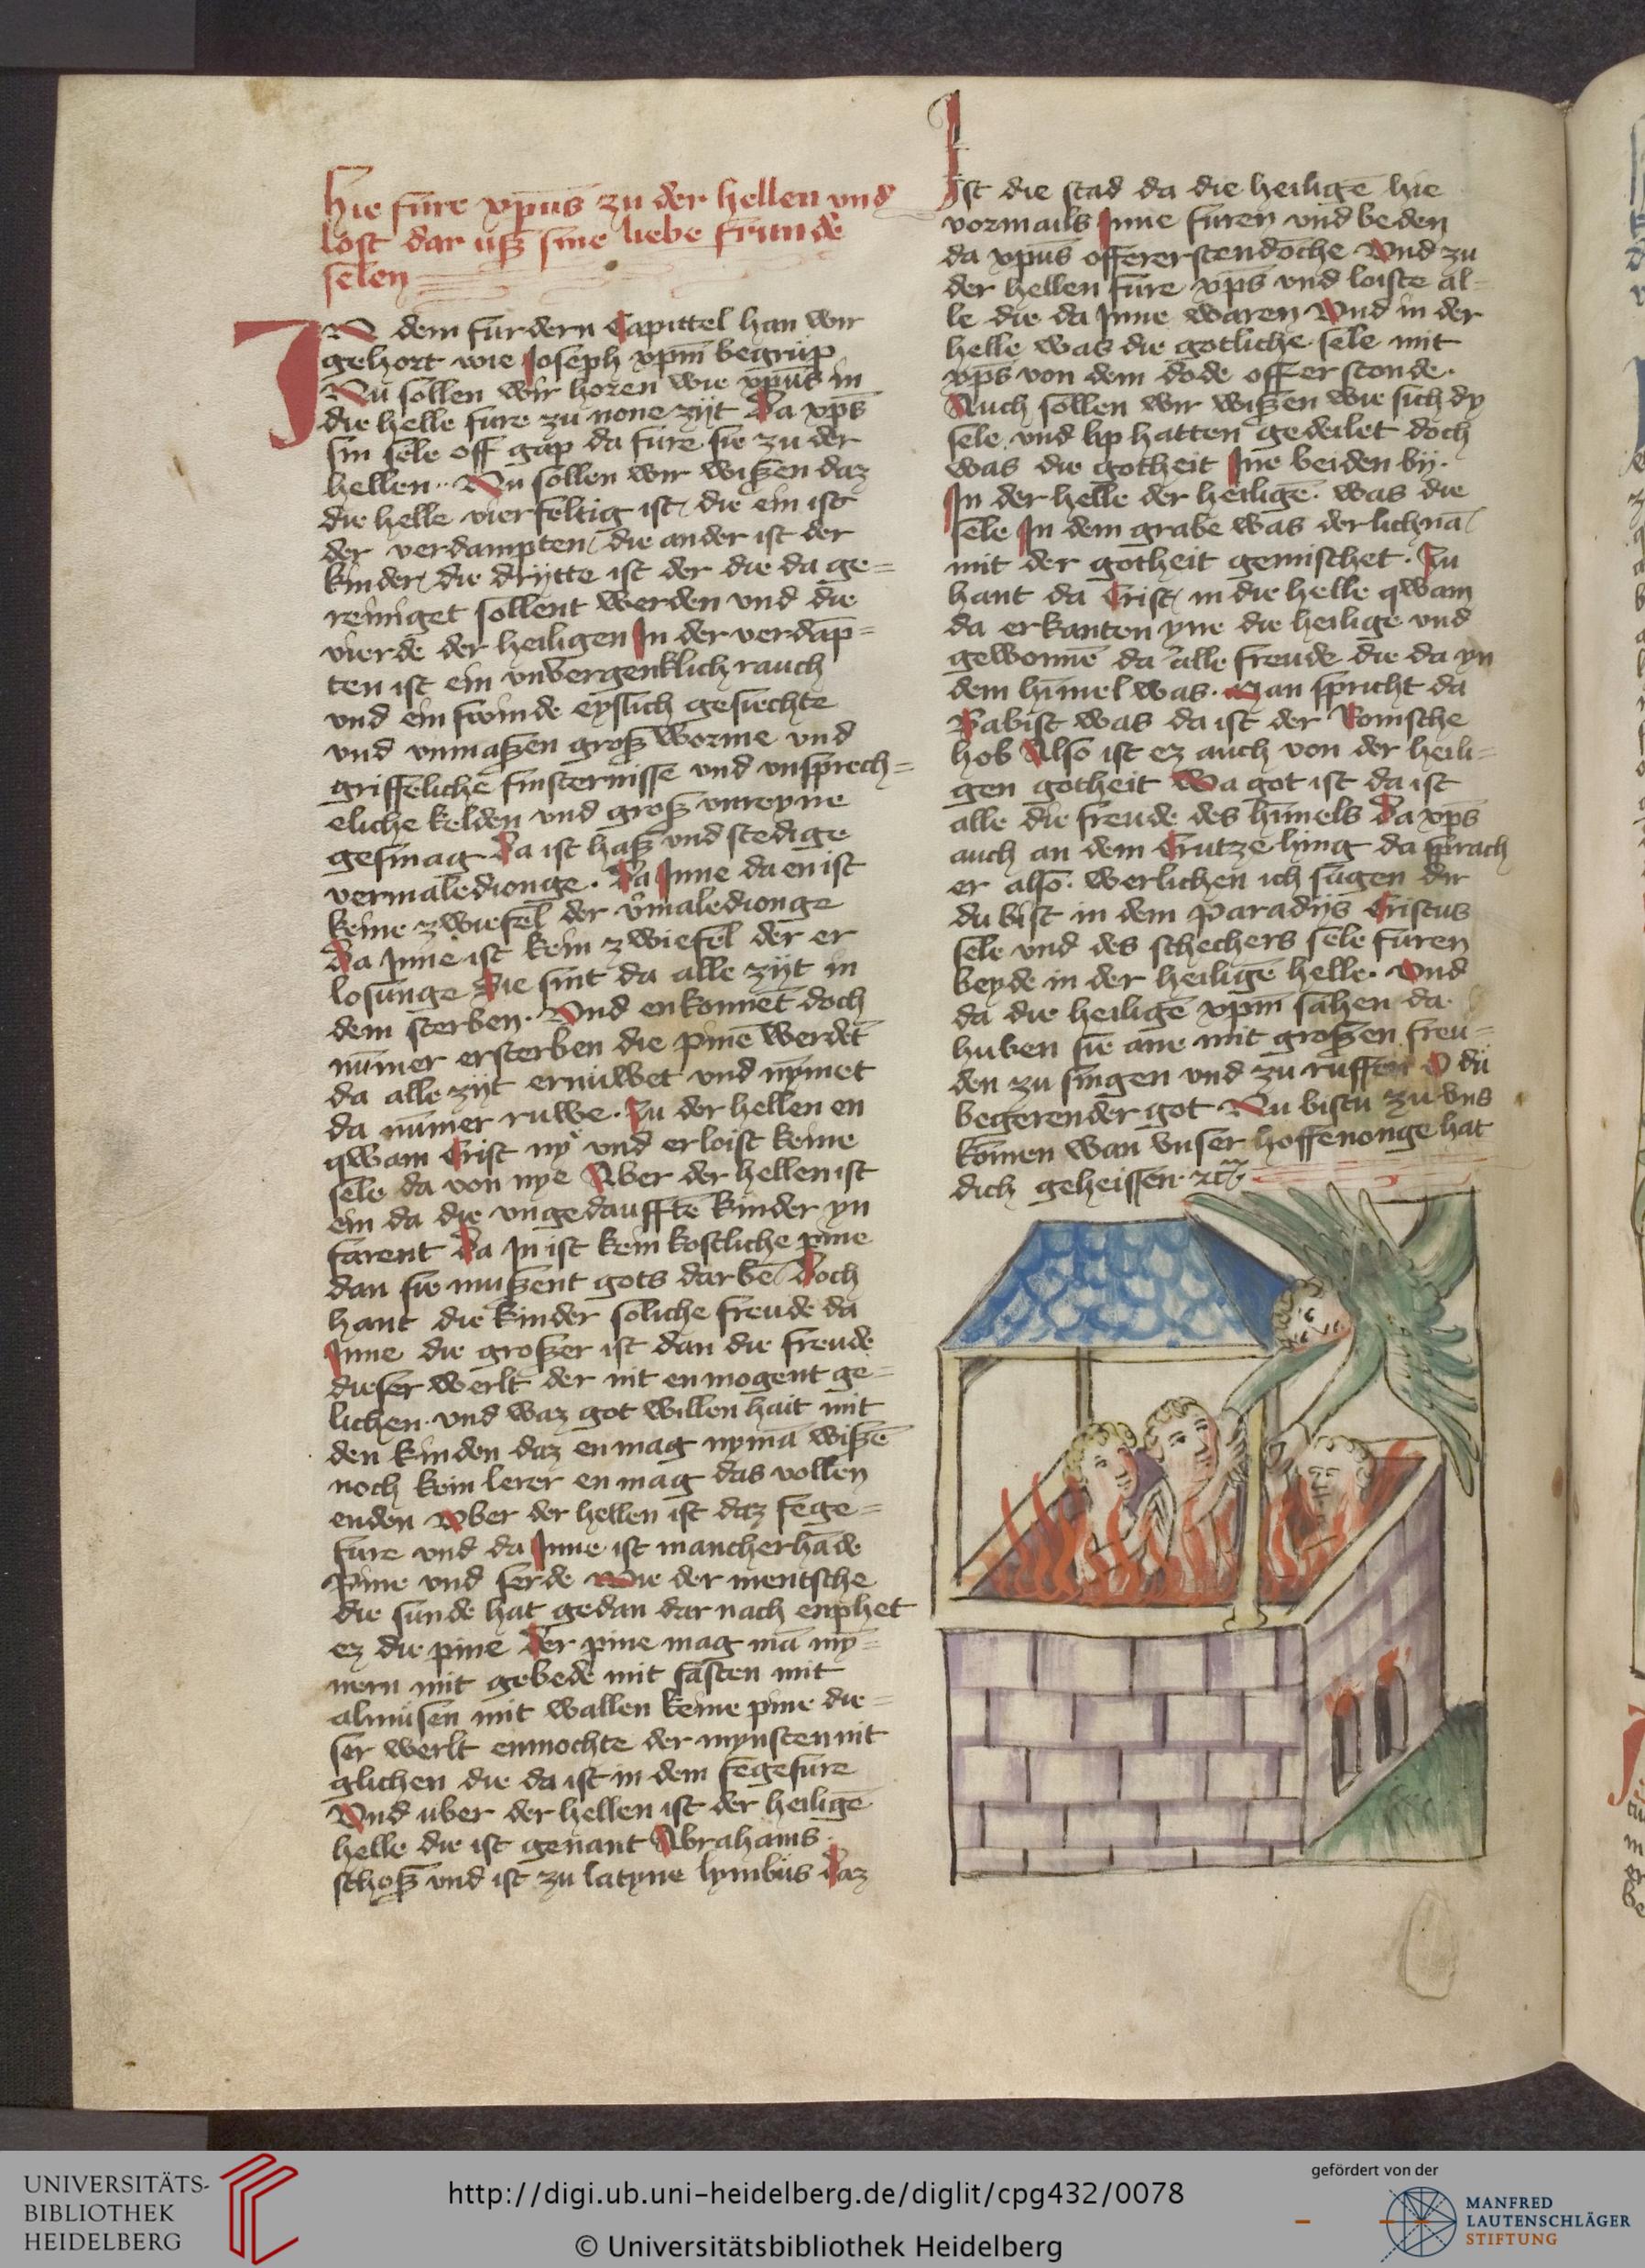 Hie fure xpus zu der hellen vnd
lost dar uß sine liebe frunde
selen
IN dem furdern Capittel han wir
gehort wie Joseph xpm begrup
Nu sollen wir horen wie xpus in
die helle fure zu none zijt Da xps
sin sele off gap da fure sie zu der
hellen Nu sollen wir wißen daz
die helle vierfeltig ist die ein ist
der verdampten die ander ist der
kinder die drytte ist der die da ge=
reiniget sollent werden vnd die
vierde der heiligen In der verdāp=
ten ist ein vnvergenklich rauch
vnd ein swinde eyslich gesiechte
vnd vnmaßen groß worme vnd
griffeliche finsternisse vnd vnsprech=
eliche kelden vnd groß vnreyne
gesmag Da ist haß vnd stedige
vermaledionge. Da Inne da en ist
keine zwiefel der v̄maledionge
Da Inne ist kein zwiefel der er
losunge Sie sint da alle zijt in
dem sterben. Vnd enkonnēt doch
nūmer ersterben die pinē werdēt
da alle zijt ernuwet vnd nymet
da nūmer ruwe. Zu der hellen en
qwam Crist ny vnd erloist keine
sele da von nye Aber der hellen ist
ein da die vngedaufftē kinder yn
farent Da In ist kein kostliche pine
dan sie mußent gots darbē Doch
hant die kinder soliche freude da
Inne die großer ist dan die freude
dieser werlt der nit enmogent ge=
lichen vnd waz got willen hait mit
den kinden daz en mag nymā wißē
noch kein lerer en mag das vollen
enden Vber der hellen ist daz fege=
fure vnd da Inne ist mancherhāde
pine vnd serde Wie der mentsche
die sunde hat gedan dar nach enphet
ez die pine Der pine mag mā my=
nern mit gebede mit fasten mit
almusen mit wallen keine pine die=
ser werlt enmochte der mynsten nit
glichen die da ist in dem fegefure
Vnd uber der hellen ist der heiligē
helle die ist genant Abrahams
schoß vnd ist zu latyne lymbus Daz
Ist die stad da die heiligē hie
vormails Inne furen vnd beden
da xpus offererstendoche Vnd zu
der hellen fure xps vnd loiste al=
le die da Inne waren Vnd in der
helle was die gotliche sele mit
xps von dem dode offerstonde.
Auch sollen wir wißen wie sich dy
sele vnd lip hatten gedeilet doch
was die gotheit Ine beiden bij.
In der helle der heiligē was die
sele In dem grabe was der lichnā
mit der gotheit gemischet. Zu
hant da Crist in die helle qwam
da erkanten yne die heilige vnd
gewonnē da alle freude die da yn
dem himel was. Man spricht da
Babist was da ist der Romische
hob Also ist ez auch von der heili=
gen gotheit Wa got ist da ist
alle die freude des himels Da xps
auch an dem Crutze hing da sprach
er also werlichen ich sagen dir
du bist in dem paradijs Cristus
sele vnd des schechers sele furen
beyde in der heiligē helle. Vnd
da die heiligē xpm sahen da
huben sie ane mit großen freu=
den zu singen vnd zu ruffen O du
begerender got Nu bistu zu vns
komen wan vnser hoffenonge hat
dich geheissen ꝛc
UNIVERSITÄTS-
BIBLIOTHEK
HEIDELBERG
http://digi.ub.uni-heidelberg.de/diglit/cpg432/0078
© Universitätsbibliothek Heidelberg
gefördert von der
MANFRED
LAUTENSCHLÄGER
STIFTUNG